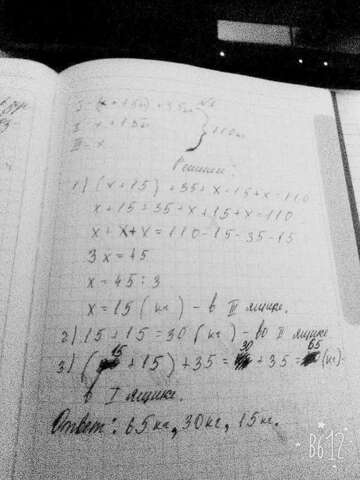 I - (x + 15кг) + 35кг
II - x + 15кг
III - x
} 110кг
Решение:
1) (x + 15) + 35 + x + 15 + x = 110
x + 15 + 35 + x + 15 + x = 110
x + x + x = 110 - 15 - 35 - 15
3x = 45
x = 45 : 3
x = 15 (кг) - в III ящике.
2) 15 + 15 = 30 (кг) - во II ящике
3) (15 + 15) + 35 = 30 + 35 = 65 (кг) -
в I ящике.
Ответ: 65кг, 30кг, 15кг.
B612